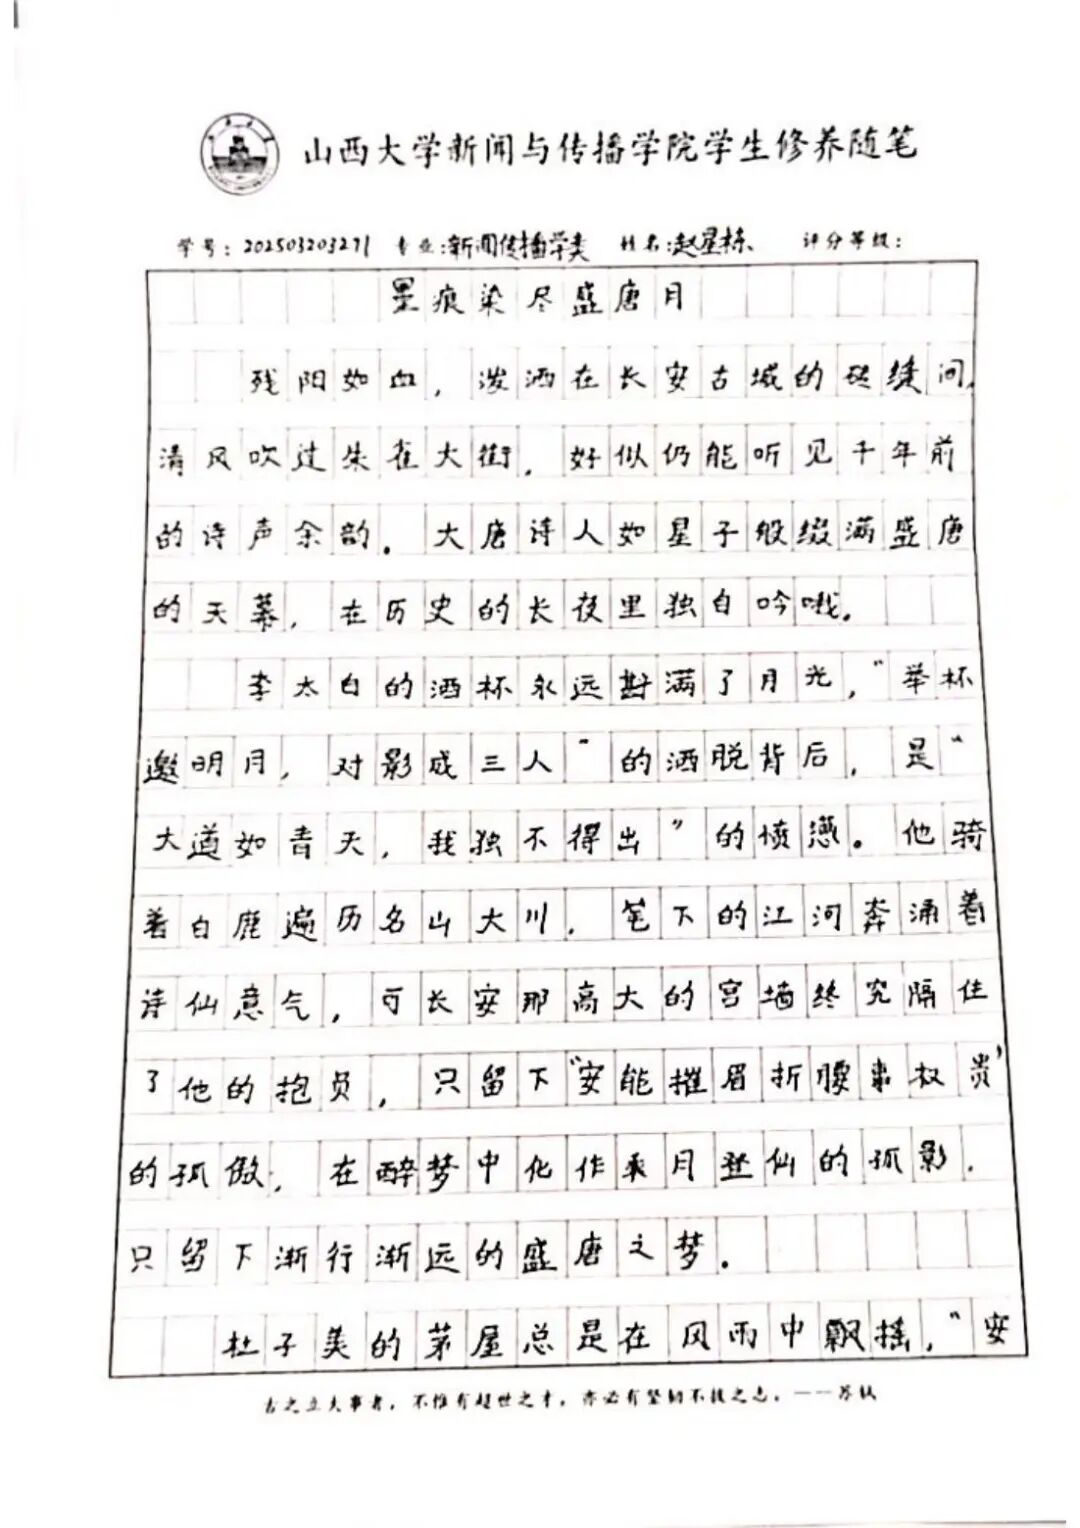 山西大学新闻与传播学院学生修养随笔
学号：202503203271 专业：新闻传播学类 姓名：赵星栋 评分等级：
墨痕染尽盛唐月
残阳如血，泼洒在长安古城的砖缝间，
清风吹过朱雀大街，好似仍能听见千年前
的诗声余韵。大唐诗人如星子般缀满盛唐
的天幕，在历史的长夜里独自吟哦。
李太白的酒杯永远斟满了月光，“举杯
邀明月，对影成三人”的洒脱背后，是“
大道如青天，我独不得出”的愤懑。他骑
着白鹿遍历名山大川，笔下的江河奔涌着
诗仙意气，可长安那高大的宫墙终究隔住
了他的抱负，只留下“安能摧眉折腰事权贵”
的孤傲，在醉梦中化作乘月登仙的孤影，
只留下渐行渐远的盛唐之梦。
杜子美的茅屋总是在风雨中飘摇，“安
古之立大事者，不惟有超世之才，亦必有坚韧不拔之志。——苏轼